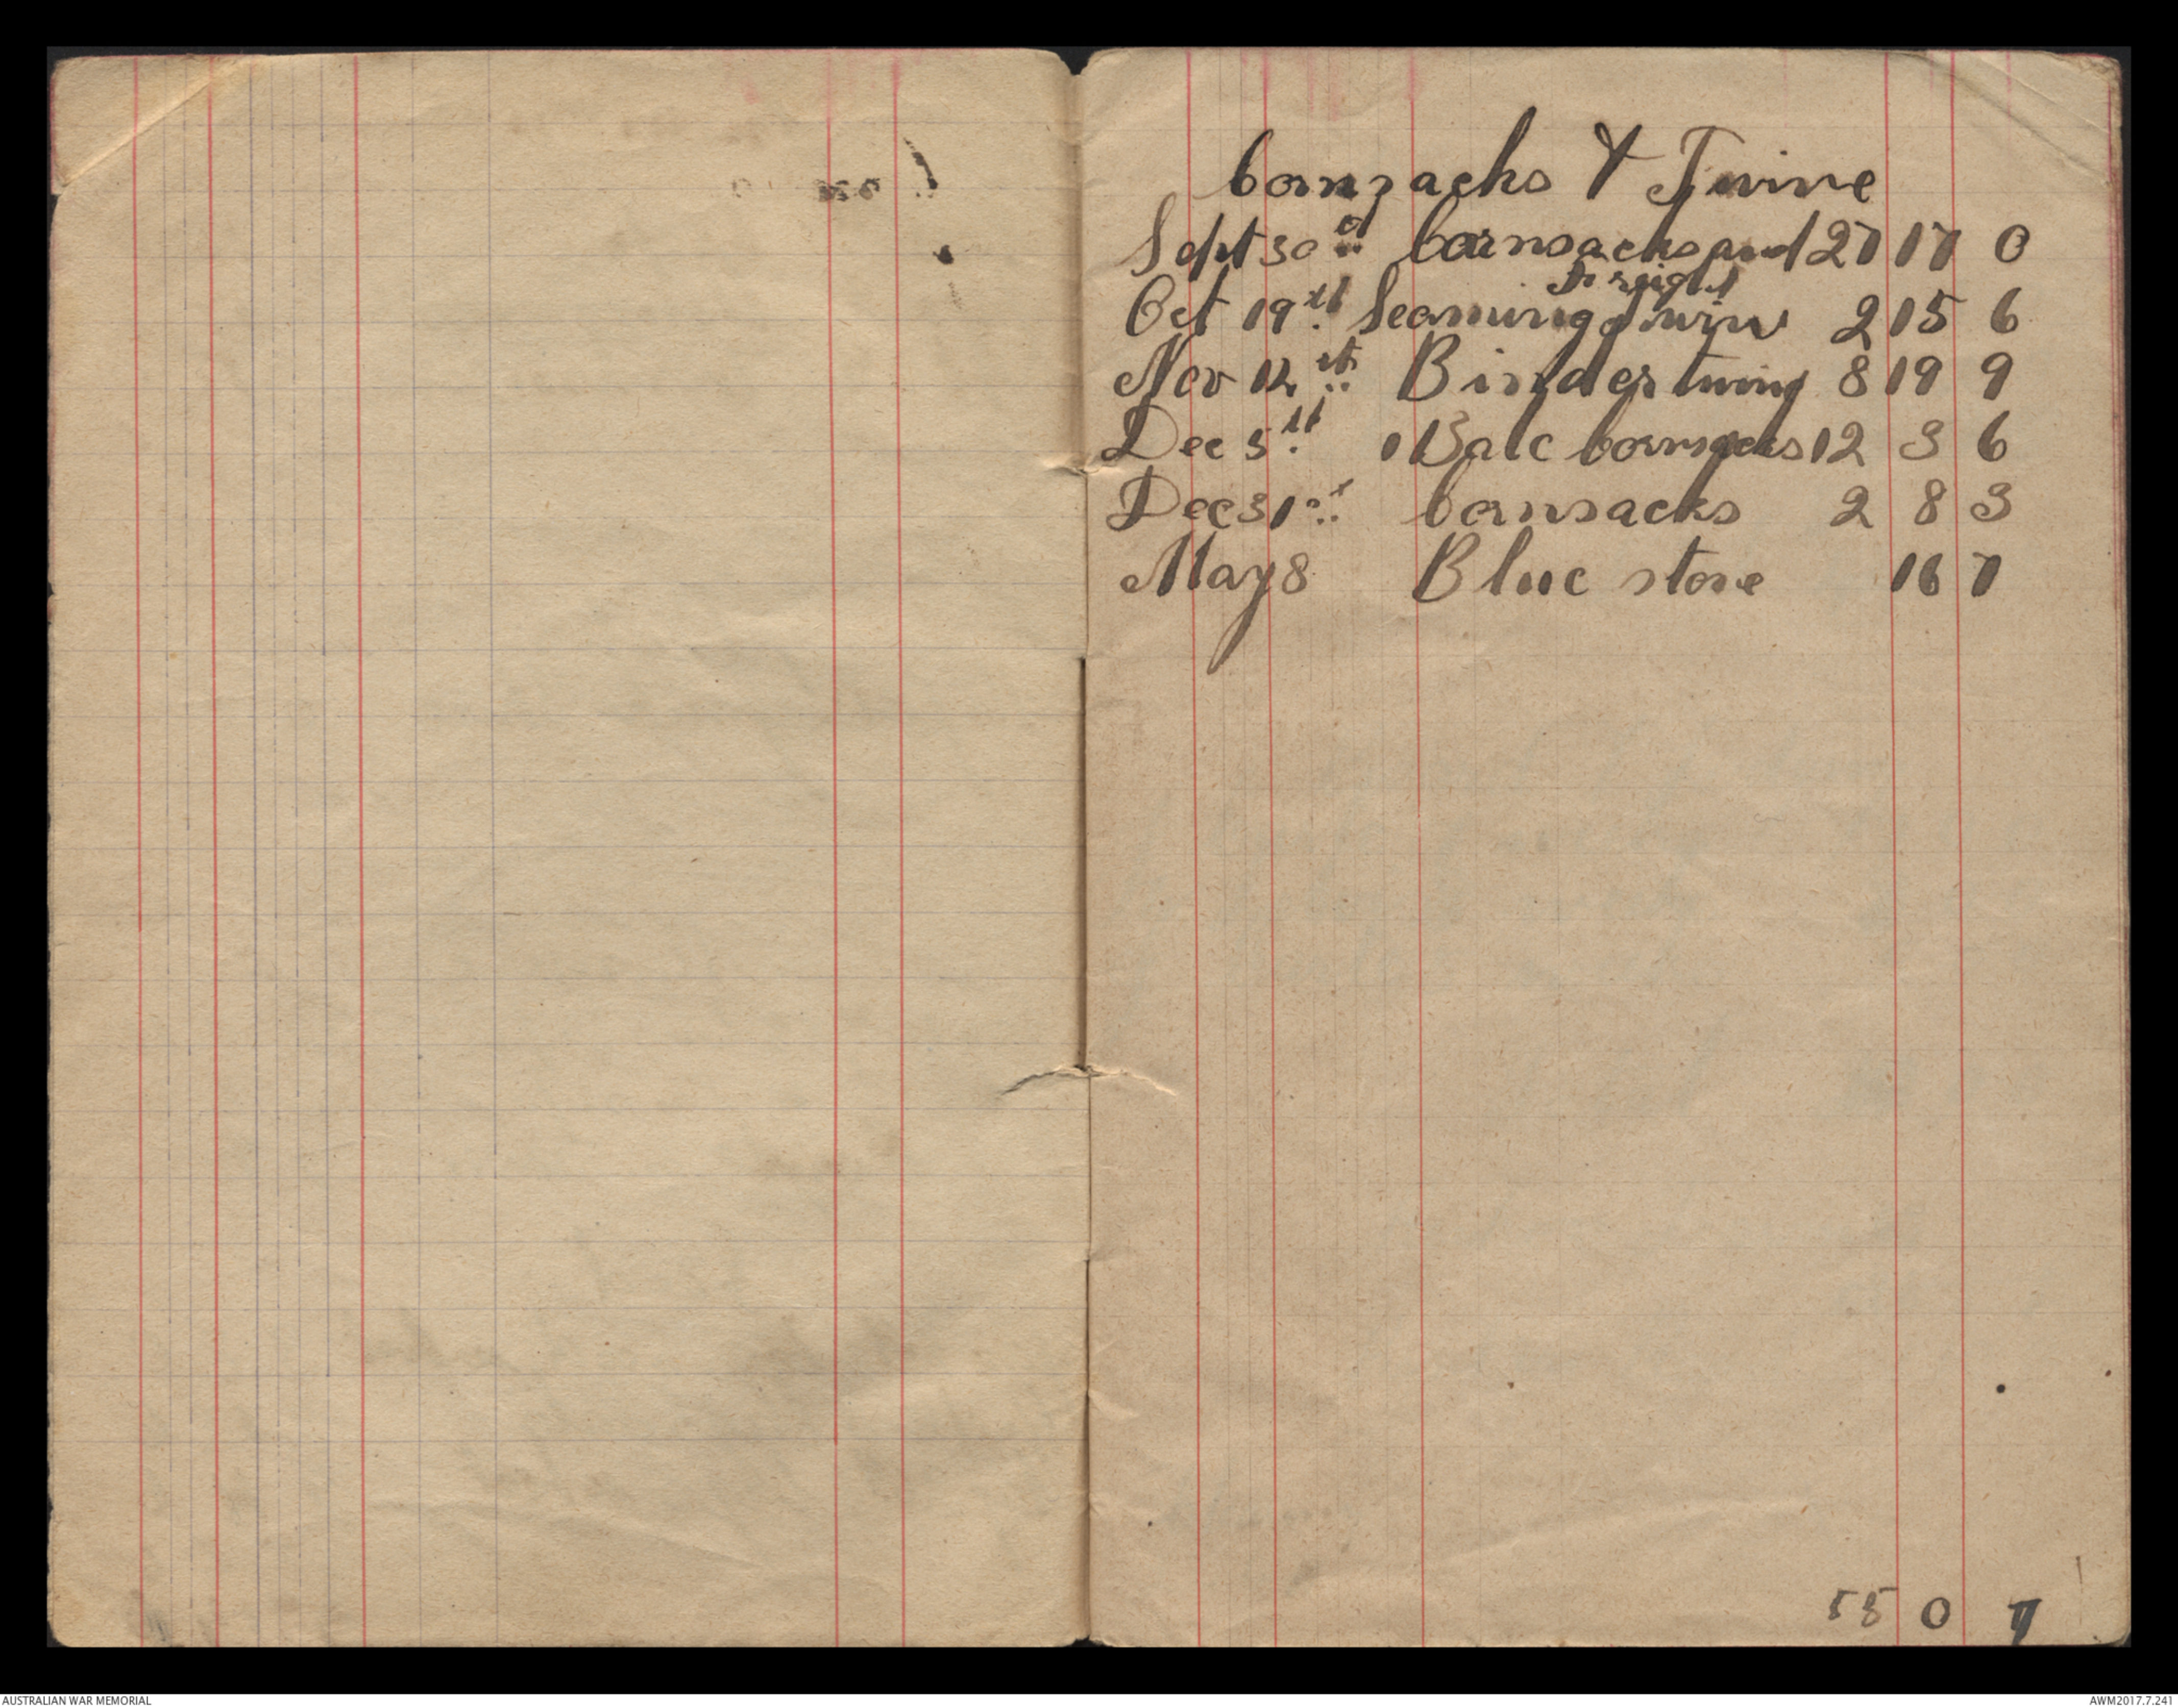 Cornsacks & Twine
Sept 30th Cornsacks and 27 17 0
freight
Oct 19th Seaming Twine 2 15 6
Nov 12th Binder twine 8 19 9
Dec 5th 1 Bale Cornsacks 12 3 6
Dec 31st Cornsacks 2 8 3
May 8 Blue stone 16 7
55 0 7
AUSTRALIAN WAR MEMORIAL
AWM2017.7.241